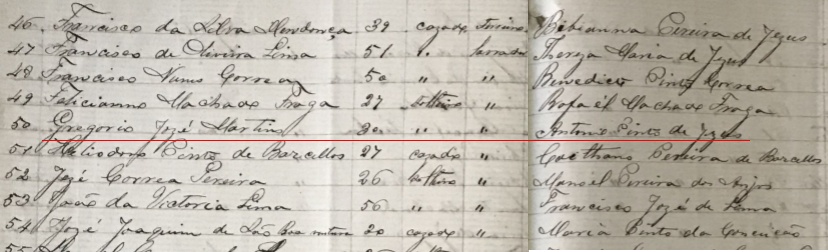 46 Francisco da Silva Mendonça 39 cazado Bibianna Pereira de Jezus
47 Francisco de Oliveira Lima 51 " lavrador Thereza Maria de Jezus
48 Francisco Nunes Correa 50 " " Benedicto Pinto Correa
49 Felicianno Machado Fraga 27 solteiro " Rafael Machado Fraga
50 Gregorio Jozé Martins 30 " " Antonio Pinto de Jezus
51 Heliodoro Pinto de Barcellos 27 cazado " Caethano Pereira de Barcellos
52 Jozé Correa Pereira 26 solteiro " Manoel Pereira dos Anjos
53 João da Victoria Lima 56 " " Francisco Jozé de Lima
54 Jozé Joaquim de São Boa ventura 20 cazado " Maria Pinto da Conceição
55